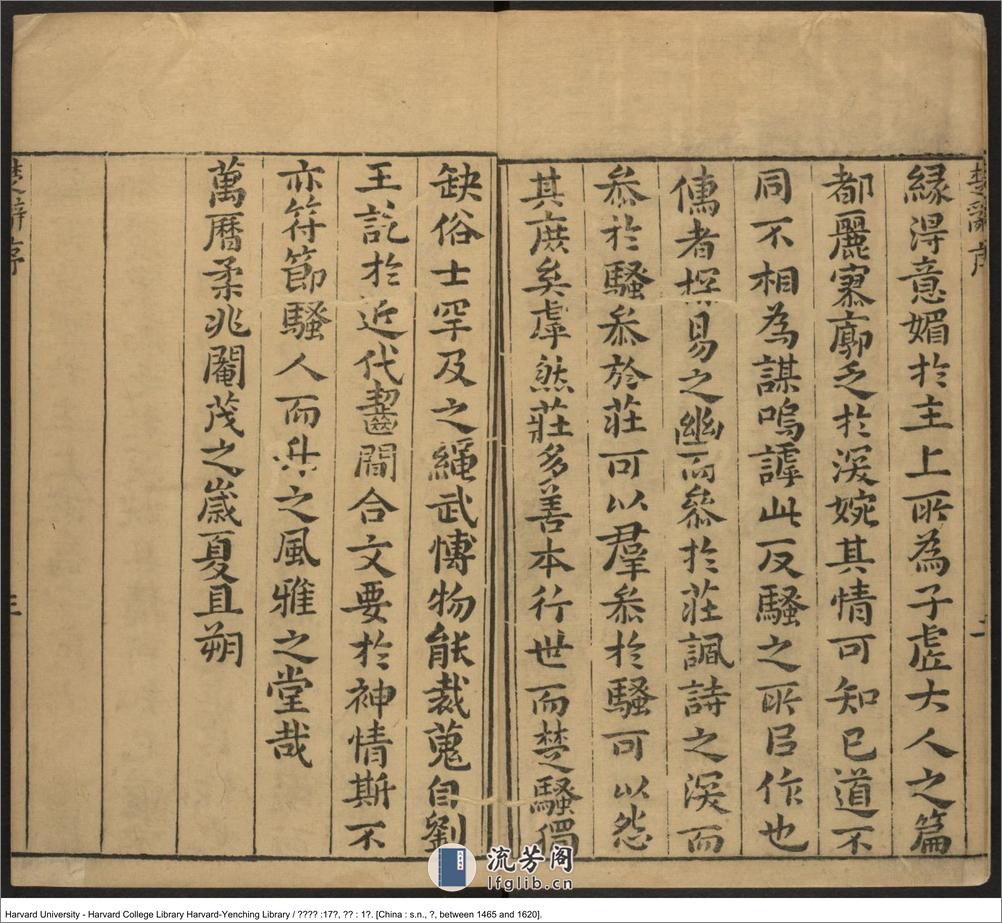 楚辭序
二
緣淂意媚扵主上所為子虛大人之篇
都麗寥廓乏扵淚婉其情可知已道不
同不相為謀嗚謼此反騷之所㠯作也
儒者探易之幽而叅扵莊諷詩之淚而
叅扵騷叅扵莊可以羣叅扵騷可以怨
其庶矣虖然莊多善本行世而楚騷獨
缺俗士罕及之繩武愽物能裁蒐自劉
王訖扵近代齧闇合文要扵神情斯不
亦符節騷人而升之風雅之堂哉
萬曆柔兆閹茂之歲夏且朔
楚辭序
三
流芳阁
lfglib.cn
Harvard University - Harvard College Library Harvard-Yenching Library / ???? :17?, ?? : 1?. [China : s.n., ?, between 1465 and 1620].